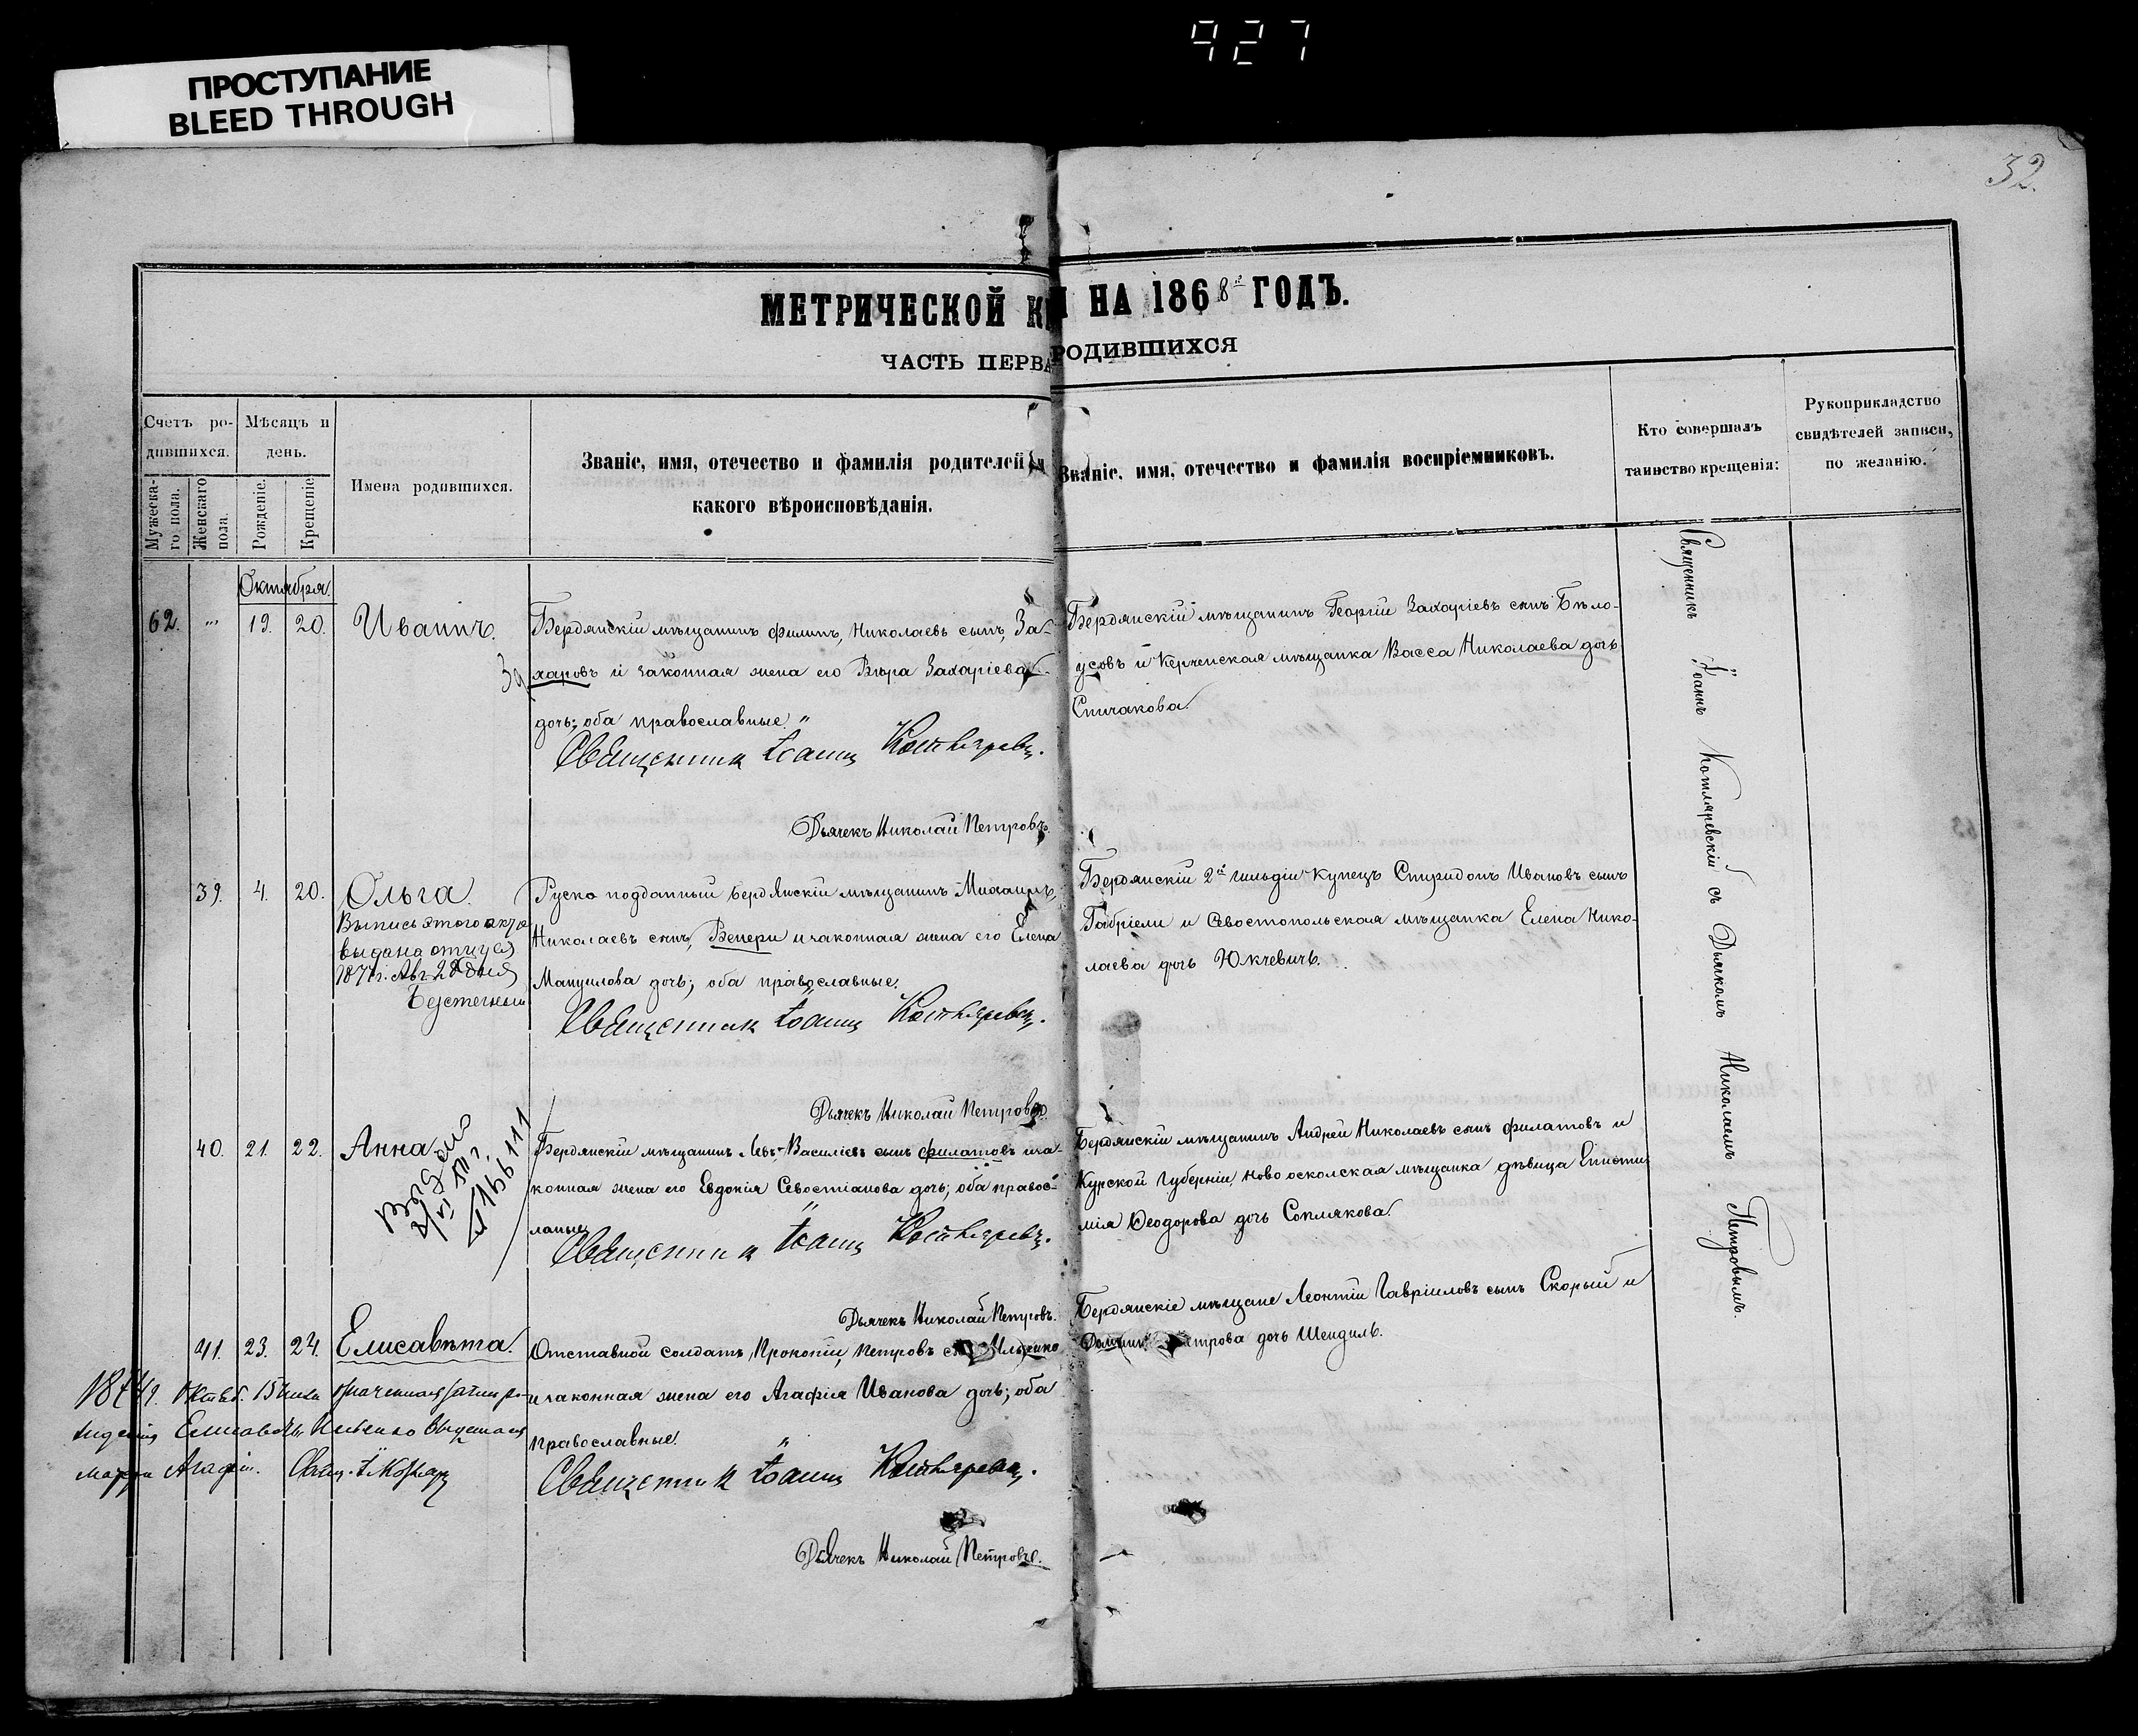 927
ПРОСТУПАНИЕ
BLEED THROUGH
32.
МЕТРИЧЕСКОЙ К НА 1868й ГОДЪ.
ЧАСТЬ ПЕРВА РОДИВШИХСЯ
Счетъ ро-
дившихся.
Мужеска-
го пола.
Женскаго
пола.
Мѣсяцъ и
день.
Рожденіе.
Крещеніе
Имена родившихся.
Званіе, имя, отечество и фамилія родителей и
какого вѣроисповѣданія.
Званіе, имя, отечество и фамилія воспріемниковъ.
Кто совершалъ
таинство крещенія:
Рукоприкладство
свидѣтелей записи,
по желанію.
Октября.
62. 19. 20. Иваннъ.
Бердянскій мѣщанинъ Филипъ, Николаевъ сынъ, За-
харовъ и законная жена его Вѣра Захаріева
дочь; оба православные.
Священникъ Іоаннъ
Дьячекъ Николай Петровъ.
Бердянскій мѣщанинъ Георгій Захаріевъ сынъ Бѣло-
усовъ и Керченская мѣщанка Васса Николаева дочь
Спичакова.
39. 4. 20. Ольга.
Выпись этого акта
выдана отцу
1871 г. Авг. 28 дня
Руско подданный бердянскій мѣщанинъ Михаилъ,
Николаевъ сынъ, Венери и законная жена его Елена
Мануилова дочь; оба православные.
Священникъ Іоаннъ
Дьячекъ Николай Петровъ.
Бердянскій 2й гильдіи Купецъ Спиридонъ Ивановъ сынъ
Габріели и Севостопольская мѣщанка Елена Нико-
лаева дочь Юкчевичъ.
40. 21. 22. Анна
Бердянскій мѣщанинъ Левъ Василіевъ сынъ Филатовъ и за-
конная жена его Евдокія Севостіанова дочь; оба правос-
лавные
Священникъ Іоаннъ
Дьячекъ Николай Петровъ.
Бердянскій мѣщанинъ Андрей Николаевъ сынъ Филатовъ и
Курской Губерніи, Новооскольская мѣщанка дѣвица Еписти-
мія Ѳеодорова дочь Соплякова.
41. 23. 24. Елисавѣта.
Отставной солдатъ, Прокопій, Петровъ Ильенко
и законная жена его Агафія Иванова дочь; оба
православные.
Священникъ Іоаннъ
Дьячекъ Николай Петровъ.
Бердянскіе мѣщане Леонтій Гавріиловъ сынъ Скорый и
дочь Шендиль.
матери Агафіи.
Священникъ Іоаннъ Котляревскій съ Дьячкомъ Николаемъ Петровымъ.